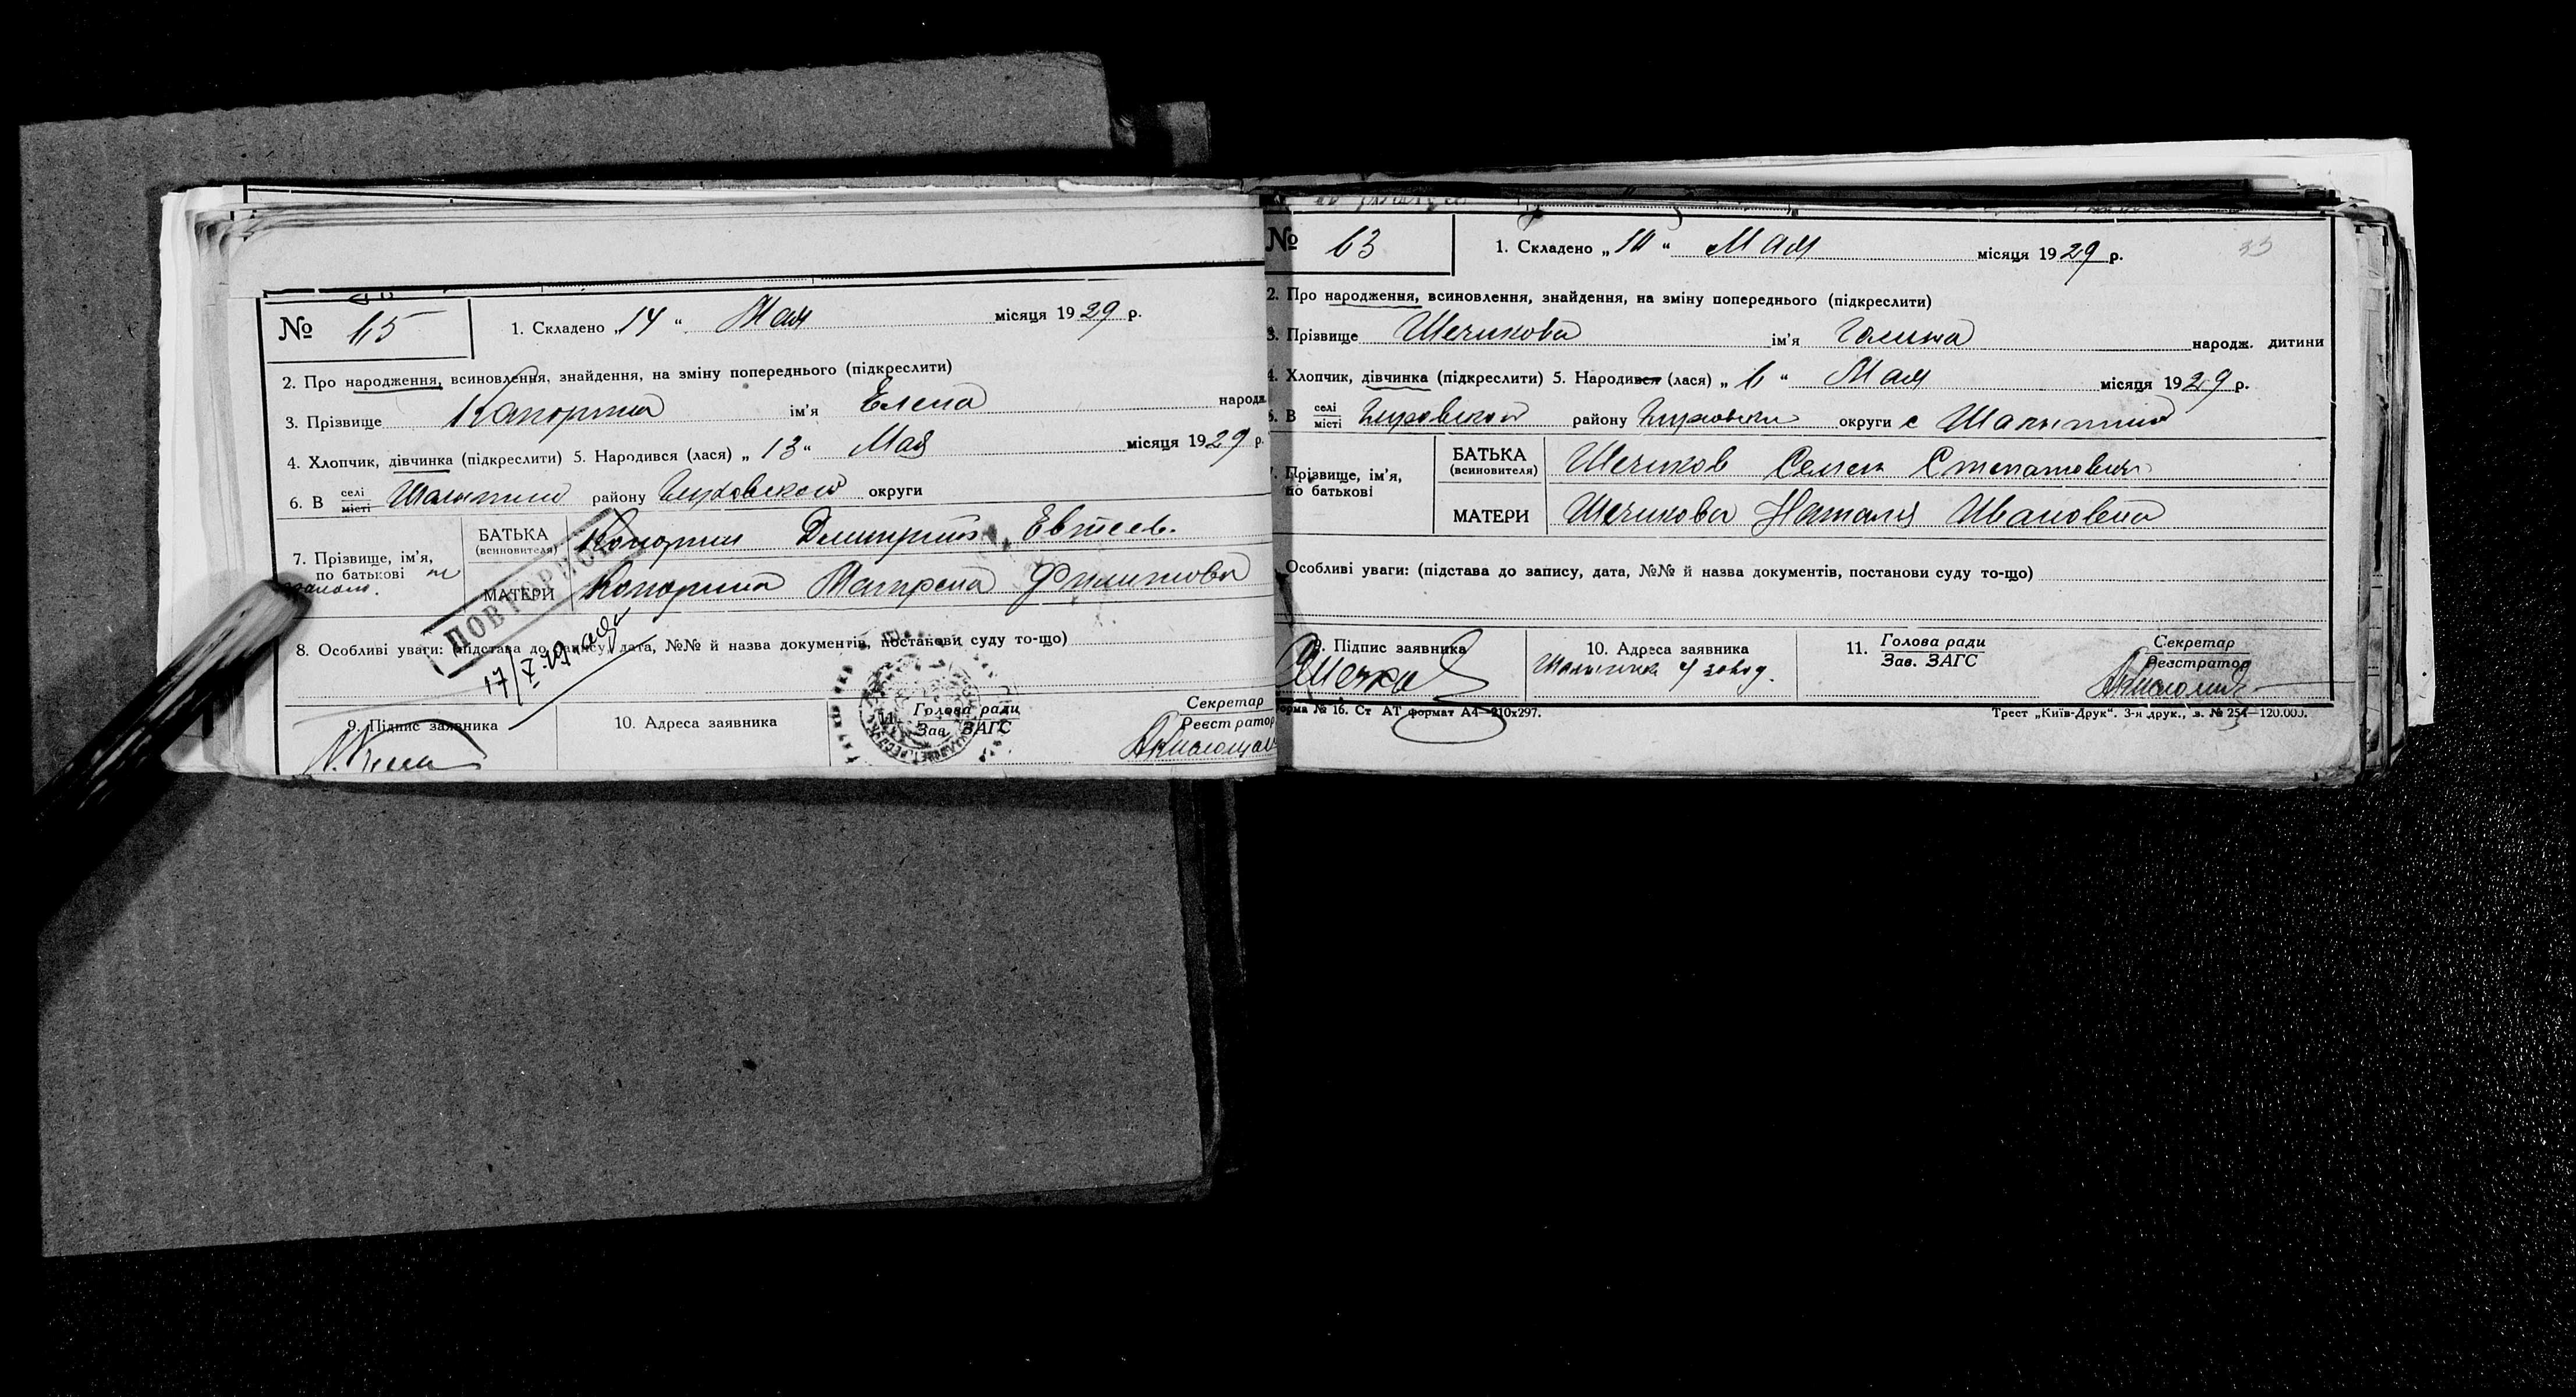 № 65
1. Складено „14“ Мая місяця 1929 р.
2. Про народження, всиновлення, знайдення, на зміну попереднього (підкреслити)
3. Прізвище Капорина ім'я Елена народж.
4. Хлопчик, дівчинка (підкреслити) 5. Народився (лася) „13“ Мая місяця 1929 р.
6. В селі місті Шалыгино району Глуховской округи
7. Прізвище, ім'я, по батькові
БАТЬКА (всиновителя) Капорин Дмитрий Евтеев.
МАТЕРИ Капорина Матрена Филипова
ПОВТОРНОЕ
17/X-49
8. Особливі уваги: (підстава до запису, дата, №№ й назва документів, постанови суду то-що)
9. Підпис заявника
10. Адреса заявника
11. Голова ради Зав. ЗАГС
Секретар Реєстратор
№ 63
1. Складено „10“ Мая місяця 1929 р.
2. Про народження, всиновлення, знайдення, на зміну попереднього (підкреслити)
3. Прізвище Шечикова ім'я Галина народж. дитини
4. Хлопчик, дівчинка (підкреслити) 5. Народився (лася) „6“ Мая місяця 1929 р.
6. В селі місті Глуховской району Глуховски округи с Шалыгино
7. Прізвище, ім'я, по батькові
БАТЬКА (всиновителя) Шечиков Семен Степанович
МАТЕРИ Шечикова Наталия Ивановна
Особливі уваги: (підстава до запису, дата, №№ й назва документів, постанови суду то-що)
9. Підпис заявника
10. Адреса заявника
11. Голова ради Зав. ЗАГС
Секретар Реєстратор
Форма № 16. Ст АТ формат А4—210x297.
Трест „Київ-Друк“. 3-я друк., з. № 254—120.000.